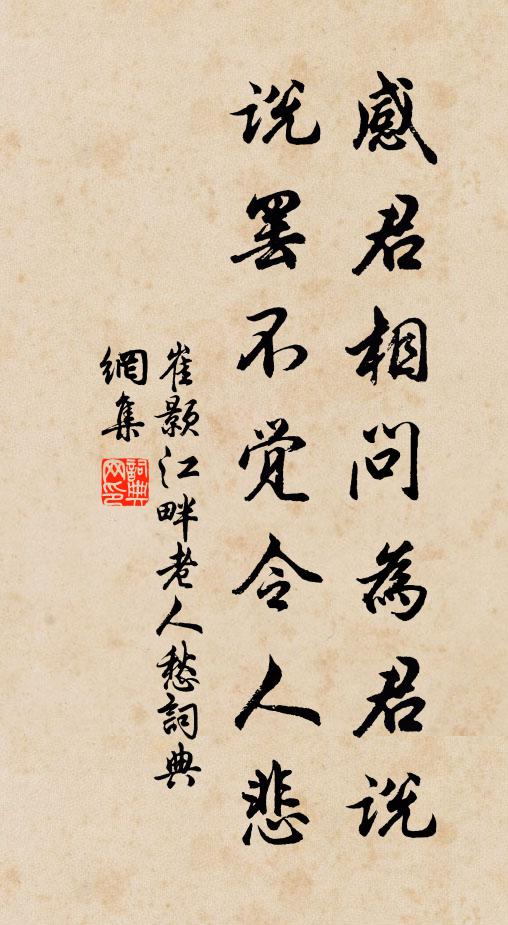 感君相问為君说
说罢不觉令人悲
崔颢江畔老人愁詞典
網集
詞典
网印